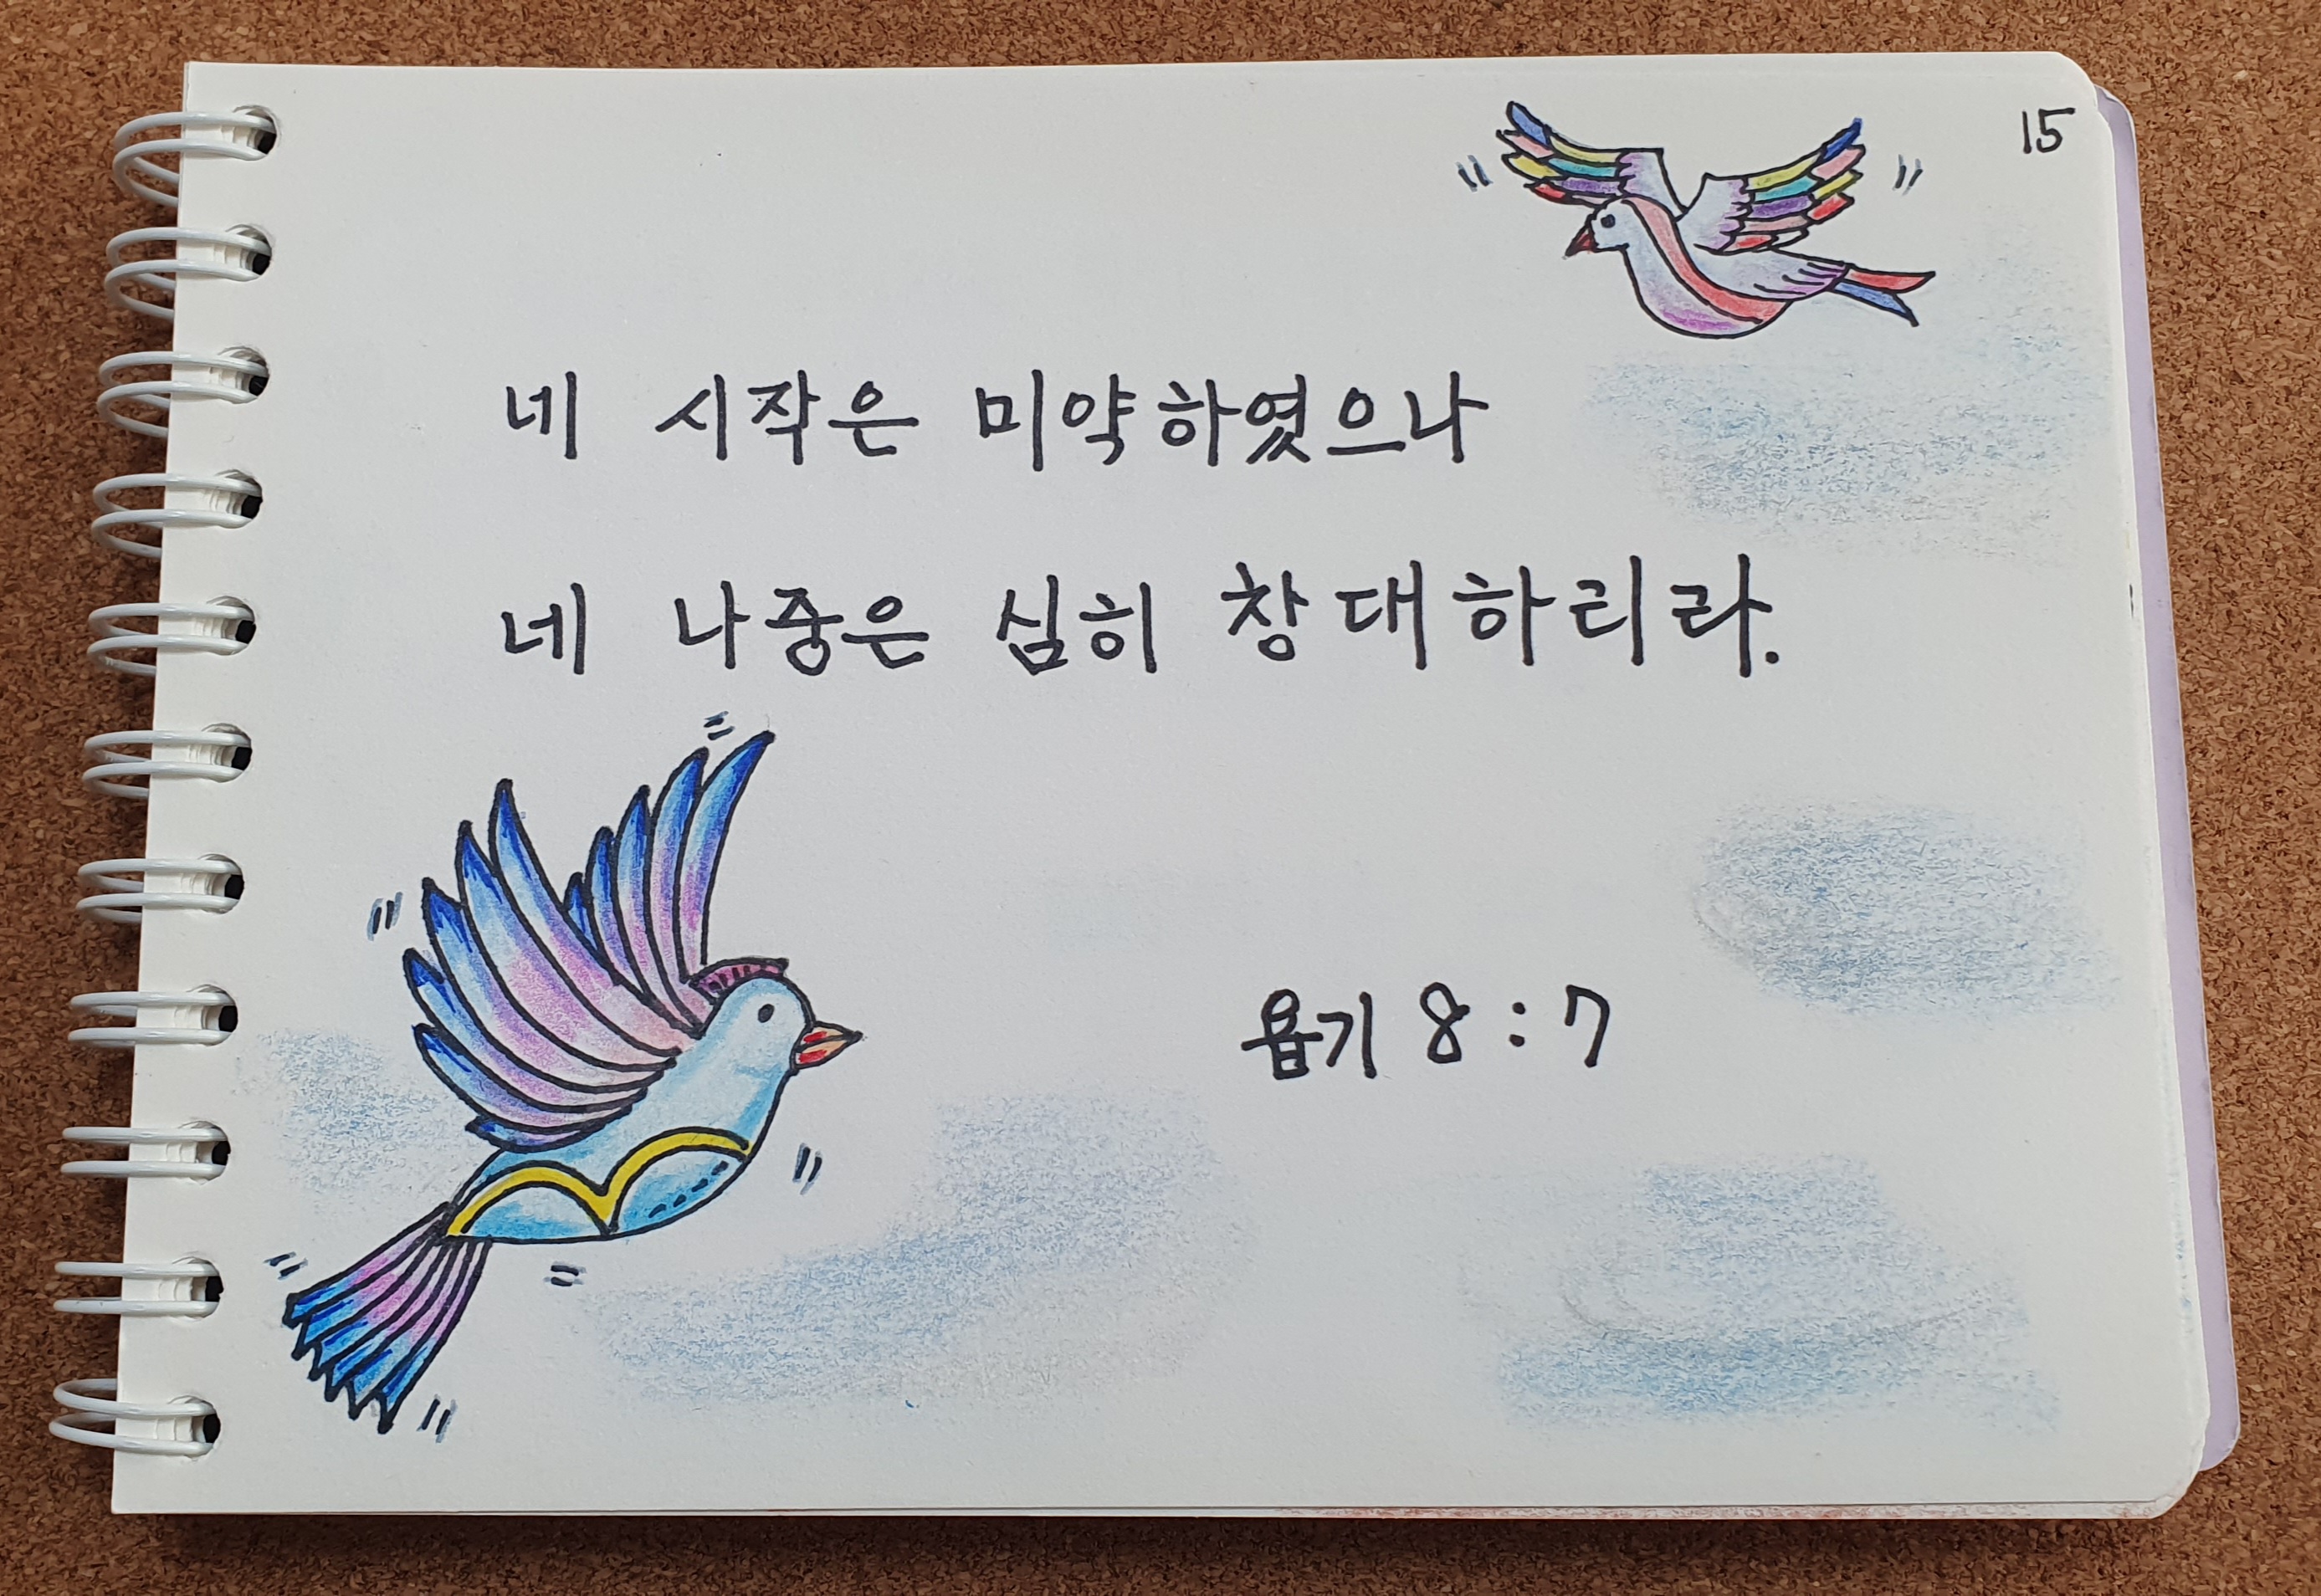 15
네 시작은 미약하였으나
네 나중은 심히 창대하리라.
욥기 8:7